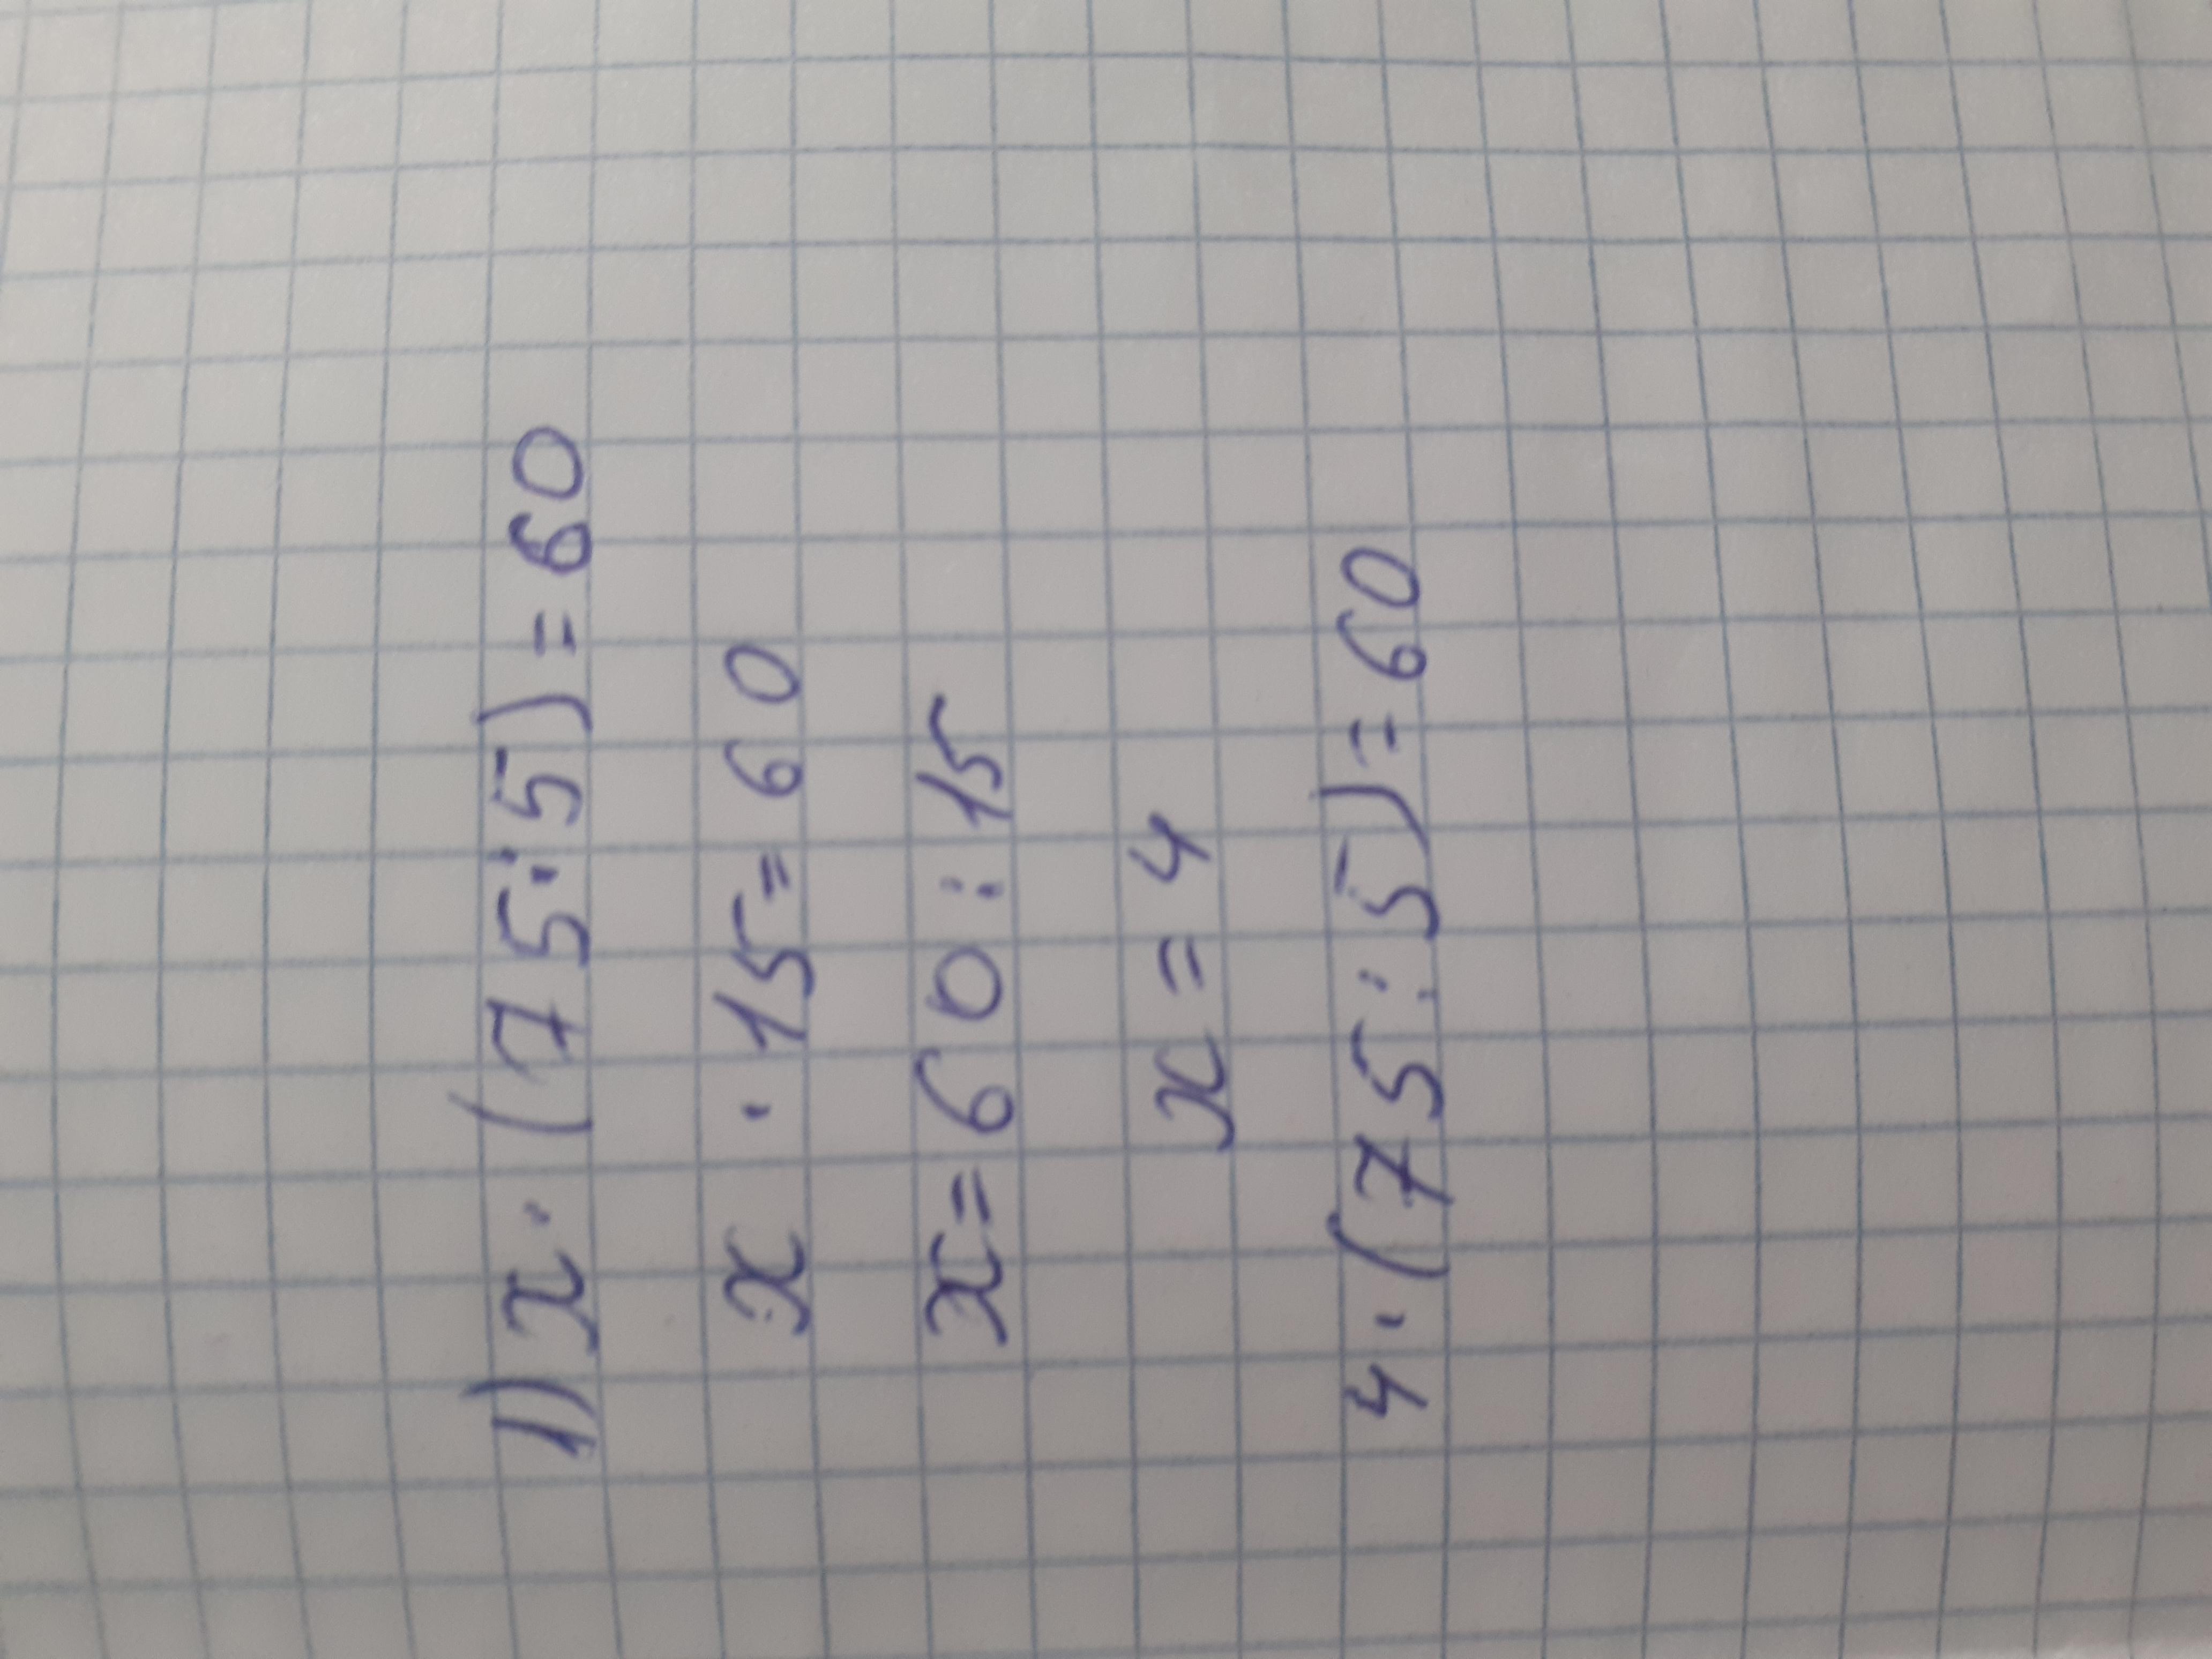 1) x · (75 : 5) = 60
x · 15 = 60
x = 60 : 15
x = 4
4 · (75 : 5) = 60